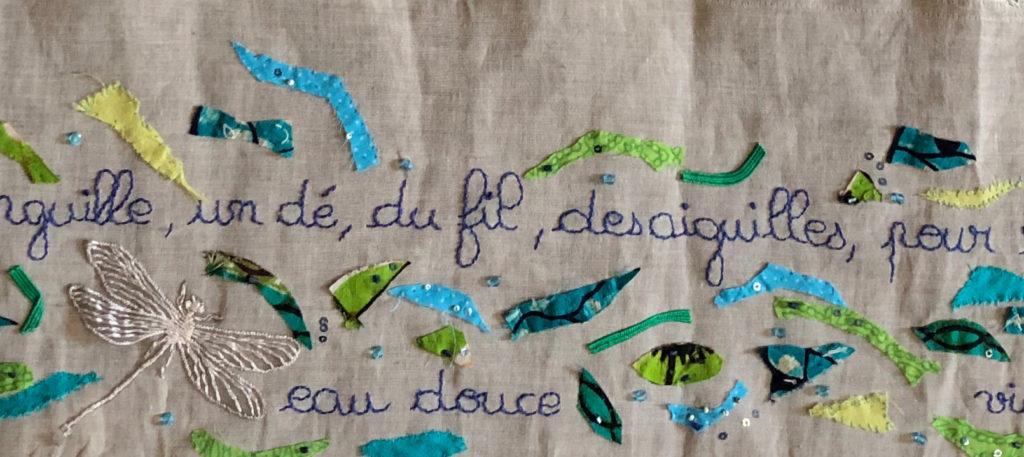 nguille, un dé, du fil, des aiguilles, pour
eau douce